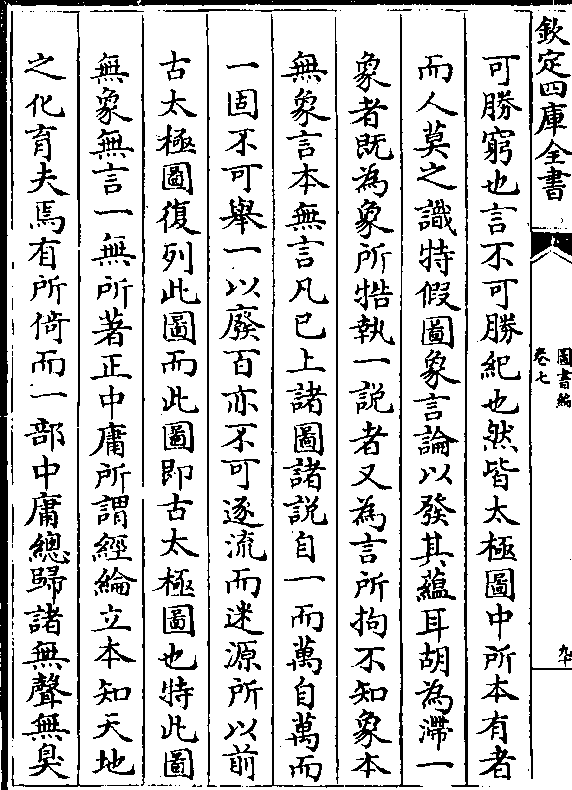 欽定四庫全書
圖書編
卷七
可勝窮也言不可勝紀也然皆太極圖中所本有者
而人莫之識特假圖象言論以發其蘊耳胡為滯一
象者既為象所牿執一說者又為言所拘不知象本
無象言本無言凡已上諸圖諸說自一而萬自萬而
一固不可舉一以廢百亦不可逐流而迷源所以前
古太極圖復列此圖而此圖即古太極圖也特此圖
無象無言一無所著正中庸所謂經綸立本知天地
之化育夫焉有所倚而一部中庸總歸諸無聲無臭